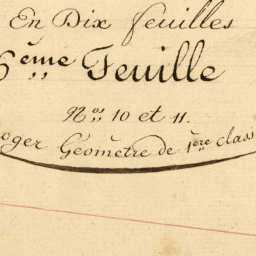 En Dix feuilles
6ème Feuille
Nos 10 et 11.
oger Géomètre de 1ère class